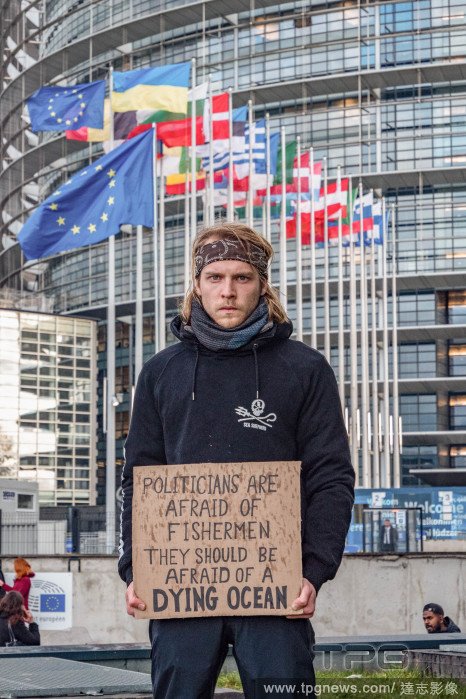 SEA SHEPHERD
POLITICIANS ARE
AFRAID OF
FISHERMEN
THEY SHOULD BE
AFRAID OF A
DYING OCEAN
Welkom
européen
TPG
www.tpgnews.com/達志影像